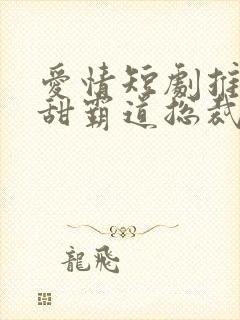 愛情短劇推
甜霸道總裁
龍飛